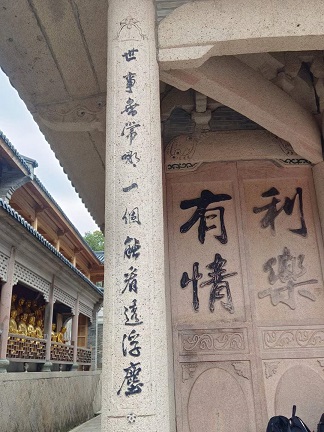 利樂
有情
世事無常哪一個能看透浮塵